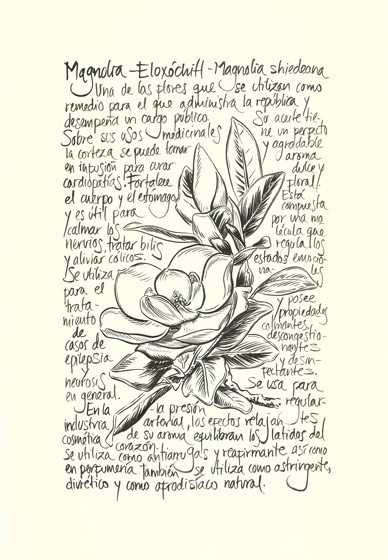 Magnolia - Eloxóchitl - Magnolia shiedeana
Una de las flores que se utilizan como
remedio para el que administra la república y
desempeña un cargo público.
Sobre sus usos medicinales
la corteza se puede tomar
en infusión para curar
cardiopatías. Fortalece
el cuerpo y el estómago
y es útil para
calmar los
nervios, tratar bilis
y aliviar cólicos.
Se utiliza
para el
trata-
miento
de
casos de
epilepsia
y
neurosis
en general.
Su aceite tie-
ne un perfecto
y agradable
aroma
dulce y
floral.
Está
compuesta
por una mo
lécula que
regula los
estados emocio-
na- les
y posee
propiedades
calmantes,
descongestio-
nantes
y desin-
fectantes.
Se usa para
regular-
la presión
arterial, los efectos relajantes
de su aroma equilibran los latidos del
corazón.
En la
industria
cosmética
se utiliza como antiarrugas y reafirmante así como
en perfumería también se utiliza como astringente,
diurético y como afrodisíaco natural.